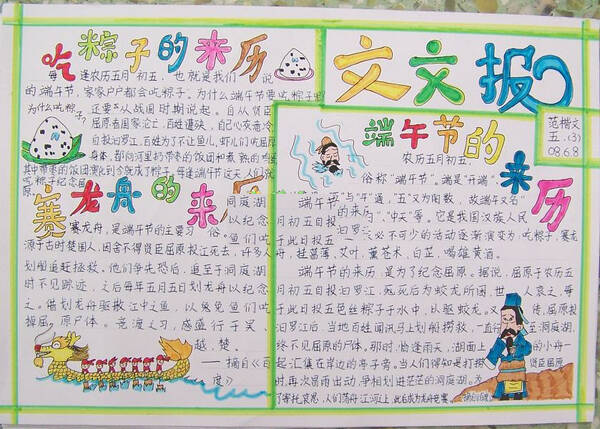 吃粽子的来历
每逢农历五月初五，也就是我们说
的端午节，家家户户都会吃粽子。为什么端午节要吃粽子
为什么吃粽子
正要从战国时期说起。自从贤臣
屈原看国家沦亡，百姓遭殃，自己
自投汨罗江，百姓为了不让鱼、虾儿们吃屈原
身体，都向河里扔带枣的饭团和煮熟的鸡
吃粽子纪念屈
原。
赛龙舟的来历
赛龙舟，是端午节的主要习俗。
源于古时楚国人，因舍不得贤臣屈原投江死去，许多人
划船追赶拯救。他们争先恐后，追至洞庭湖
时不见踪迹，之后每年五月五日划龙舟以纪念
之。借划龙舟驱散江中之鱼，以免鱼们吃
掉屈原尸体。竞渡之习，盛行于吴、
越、楚。
——摘自《百
度》
洞庭湖
以纪念
鱼们吃
文文报
范楷文
五．(3)
08.6.8
端午节的来历
农历五月初五
俗称“端午节”。端是“开端”
五”与“午”通，“五”又为阳数，故端午又名“
”、“中天”等。它是我国汉族人民
必不可少的活动逐渐演变为：吃粽子，赛龙
舟，挂菖蒲、艾叶，薰苍术、白芷，喝雄黄酒。
端午节的来历，是为了纪念屈原。据说，屈原于农历五
月初五自投汨罗江，死后为蛟龙所困，世人哀之，每
于此日投五色丝粽子于水中，以驱蛟龙。又传，屈原投
汨罗江后，当地百姓闻讯马上划船捞救，一直行至洞庭湖，
终不见屈原的尸体。那时，恰逢雨天，湖面上的小舟一
起汇集在岸边的亭子旁。当人们得知是打捞贤臣屈原
时，再次冒雨出动，争相划进茫茫的洞庭湖。为
了寄托哀思，人们荡舟江河上，此后成为龙舟竞赛。